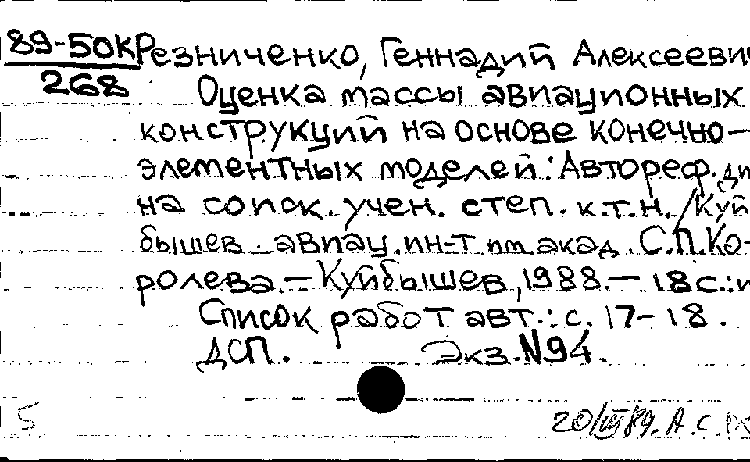 89-50К Резниченко, Геннадий Алексеевич
268
Оценка массы авиационных
конструкций на основе конечно-
элементных моделей: Автореф. ди
на соиск. учен. степ. к.т.н. / Куй
бышев. авиац. ин-т им. акад. С.П. Ко-
ролева. — Куйбышев, 1988. — 18 с.: и
Список работ авт.: с. 17-18.
ДСП. Экз. №94.
5 20/VII 89. А.С.